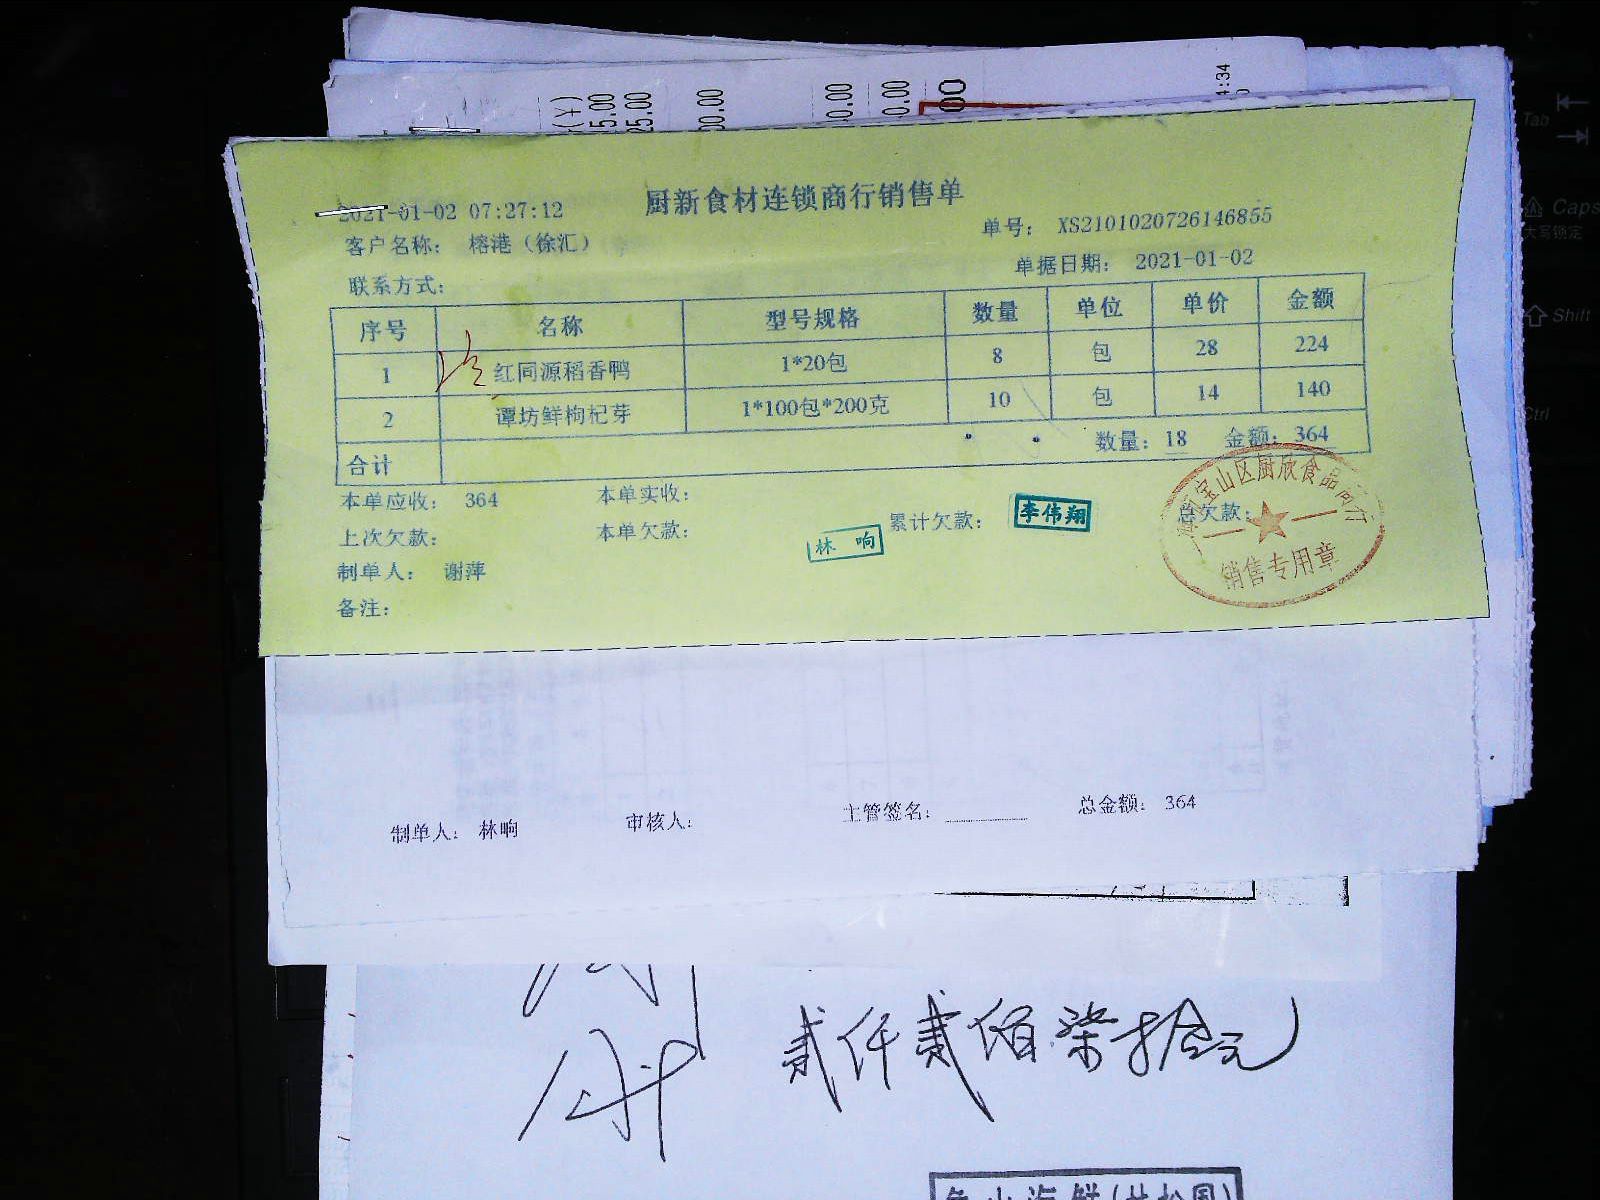 (十)
5.00
25.00
00.00
0.00
0.00
00
4:34
厨新食材连锁商行销售单
2021-01-02 07:27:12
单号: XS2101020726146855
客户名称: 榕港(徐汇)
单据日期: 2021-01-02
联系方式:
序号 名称 型号规格 数量 单位 单价 金额
1 红同源稻香鸭 1*20包 8 包 28 224
2 谭坊鲜枸杞芽 1*100包*200克 10 包 14 140
合计 数量: 18 金额: 364
本单应收: 364 本单实收: 累计欠款: 总欠款:
上次欠款: 本单欠款:
林 响
李伟翔
宝山区厨欣食品商行
销售专用章
制单人: 谢萍
备注:
制单人: 林响 审核人: 主管签名: 总金额: 364
贰仟贰佰柒拾元
Tab
Caps
大写锁定
Shift
Ctrl